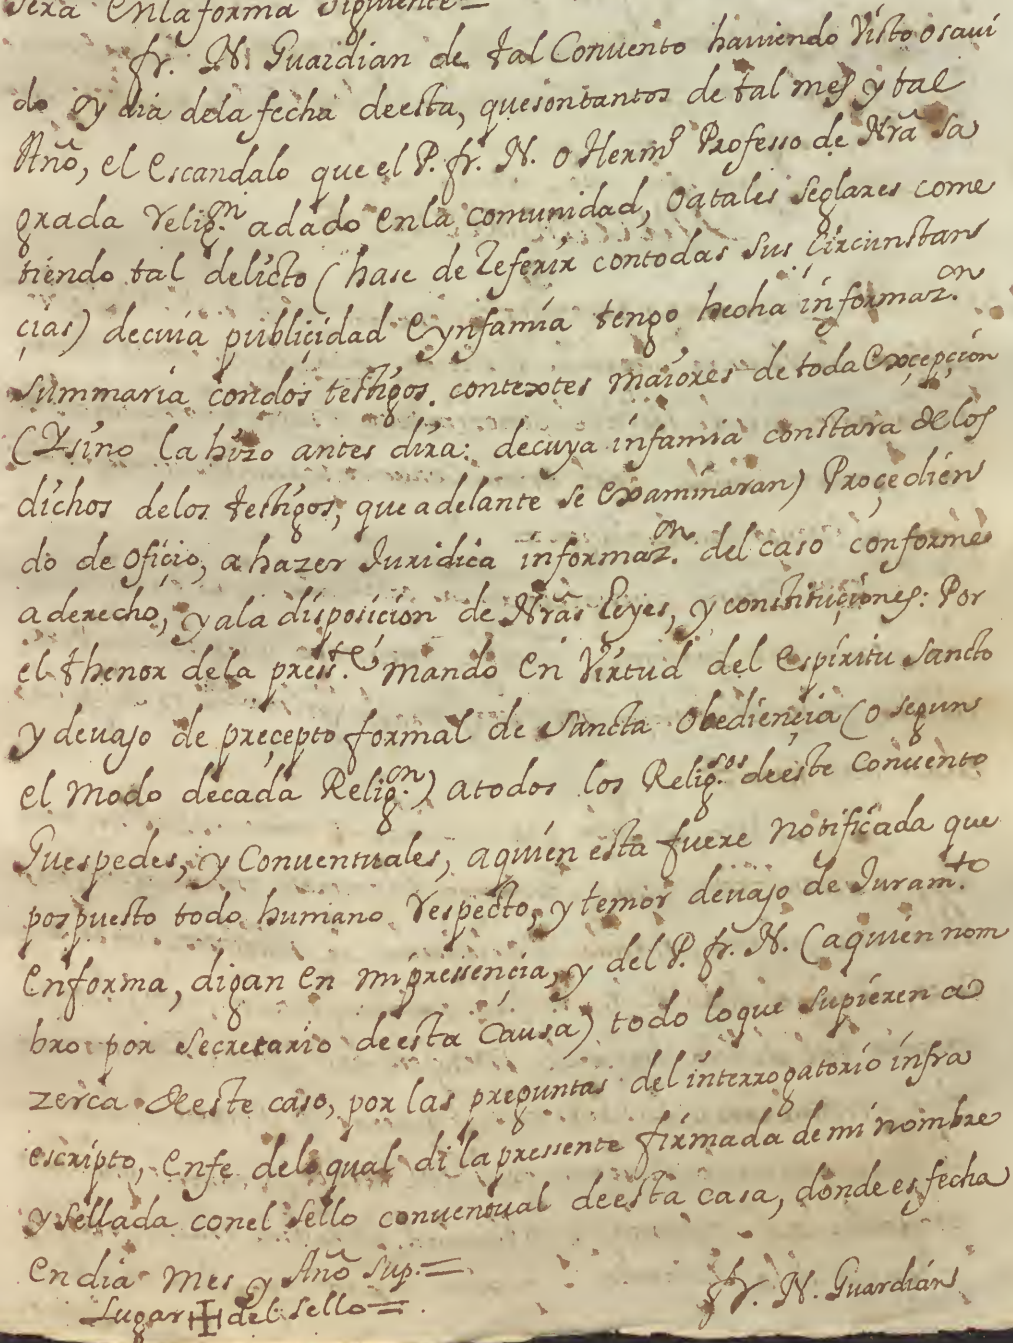 sera enlaforma siguiente=
fr. N. Guardian de tal Convento haviendo Visto o savi
do oy dia dela fecha deesta, quesontantos de tal mes y tal
Año, el escandalo que el P. fr. N. o Hermº Professo de Nrã Sa
grada relig.on adado enla comunidad, oatales seglares come
tiendo tal delicto (hase de referir contodas sus circunstan
cias) decuia publicidad eynfamia tengo hecha informaz.on
summaria condos testigos. contextes maiores de toda excepçion
(Ysino la hizo antes dira: decuya infamia constara de los
dichos delos testigos, que adelante se examinaran) Proçedien
do de oficio, a hazer Juridica informaz.on del caso conforme
a derecho, y ala disposicion de Nrãs leyes, y constituçiones: Por
el thenor dela press.te mando en Virtud del espiritu sancto
y devajo de preçepto formal de sancta obediençia (o segun
el modo decada Relig.on) atodos los Relig.sos deeste convento
Guespedes, y Conventuales, aquien esta fuere notificada que
pospuesto todo humano respecto, y temor devajo de Juram.to
enforma, digan en mipressençia, y del P. fr. N. (aquien nom
bro por secretario deesta Causa) todo loque supieren a
zerca deeste caso, por las preguntas del interrogatorio infra
escripto, enfe delo qual di la pressente firmada demi nombre
y sellada conel sello conventual deesta casa, donde es fecha
en dia mes y Año sup.=
Lugar ✠ del sello=.
fr. N. Guardian